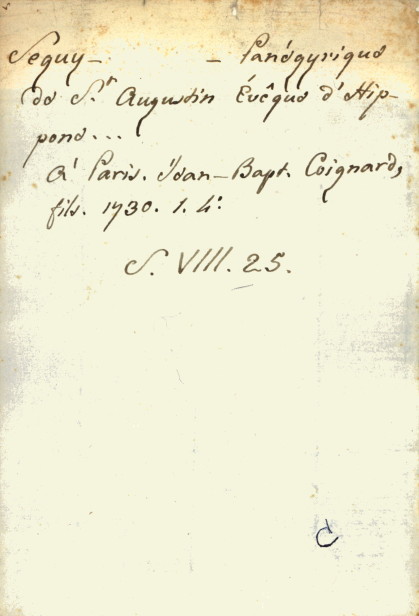 Seguy- - Panégyrique
de S.^t Augustin Évêque d'Hip-
pone...
A' Paris. Jean-Bapt. Coignard,
fils. 1730. 1. 4°.
S. VIII. 25.
C